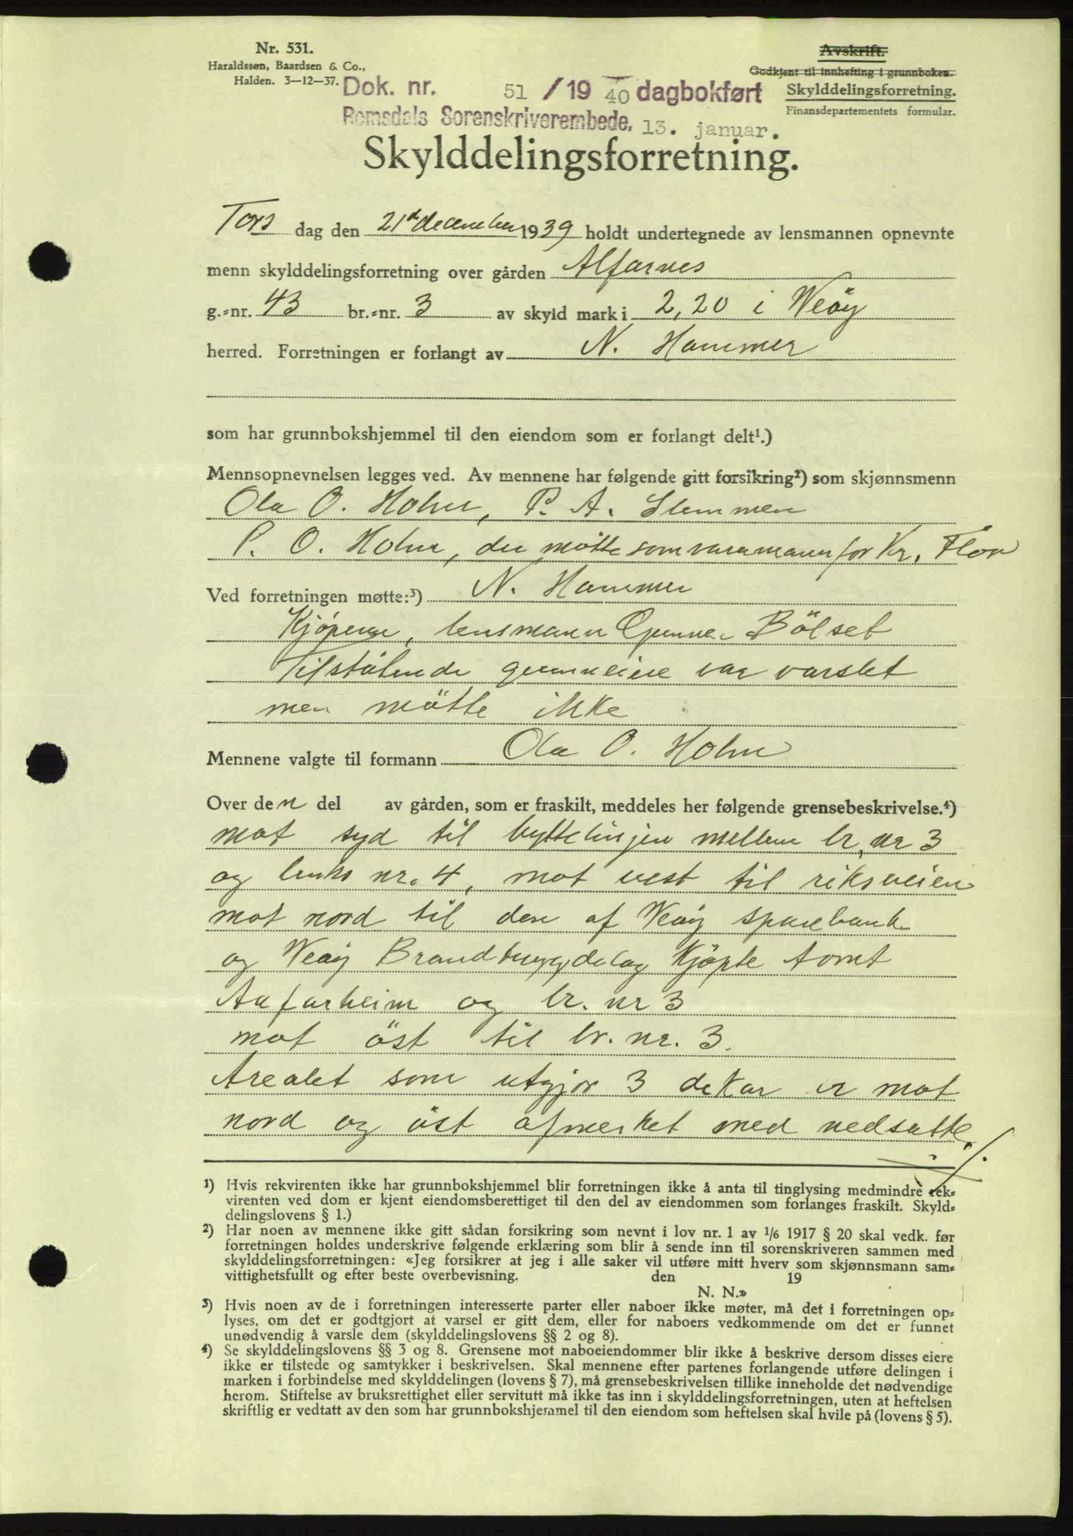 Nr. 531.
Haraldssøn, Baardsen & Co.,
Halden. 3—12—37.
Avskrift.
Godkjent til innhefting i grunnboken.
Skylddelingsforretning.
Finansdepartementets formular.
Dok. nr. 51 / 19 40 dagbokført
Romsdals Sorenskriverembede, 13. januar.
Skylddelingsforretning.
Tors dag den 21d december 1939 holdt undertegnede av lensmannen opnevnte
menn skylddelingsforretning over gården Alfarnes
g.-nr. 43 br.-nr. 3 av skyld mark i 2,20 i Veøy
herred. Forretningen er forlangt av N. Hammer
som har grunnbokshjemmel til den eiendom som er forlangt delt¹.)
Mennsopnevnelsen legges ved. Av mennene har følgende gitt forsikring²) som skjønnsmenn
Ola O. Holm, P. A. Slemmen
P. O. Holm, der møtte som varamann for Kr. Flov
Ved forretningen møtte:³) N. Hammer
Kjøperen, lensmann Gunnar Bölset
Tilstøtende grunneiere var varslet
men mötte ikke
Mennene valgte til formann Ola O. Holm
Over den del av gården, som er fraskilt, meddeles her følgende grensebeskrivelse.⁴)
mot syd til byttelinjen mellem br. nr 3
og bruks nr. 4, mot vest til riksveien
mot nord til den af Veøy sparebank
og Veøy Brandtrygdelag Kjøpte tomt
br. nr 3
mot öst til br. nr. 3.
Arealet som utgjør 3 dekar er mot
nord og öst afmerket med nedsatte
./.
¹) Hvis rekvirenten ikke har grunnbokshjemmel blir forretningen ikke å anta til tinglysing medmindre rek-
virenten ved dom er kjent eiendomsberettiget til den del av eiendommen som forlanges fraskilt. Skyld-
delingslovens § 1.)
²) Har noen av mennene ikke gitt sådan forsikring som nevnt i lov nr. 1 av 1/6 1917 § 20 skal vedk. før
forretningen holdes underskrive følgende erklæring som blir å sende inn til sorenskriveren sammen med
skylddelingsforretningen: «Jeg forsikrer at jeg i alle saker vil utføre mitt hverv som skjønnsmann sam-
vittighetsfullt og efter beste overbevisning. den 19
N. N.»
³) Hvis noen av de i forretningen interesserte parter eller naboer ikke møter, må det i forretningen op-
lyses, om det er godtgjort at varsel er gitt dem, eller for naboers vedkommende om det er funnet
unødvendig å varsle dem (skylddelingslovens §§ 2 og 8).
⁴) Se skylddelingslovens §§ 3 og 8. Grensene mot naboeiendommer blir ikke å beskrive dersom disses eiere
ikke er tilstede og samtykker i beskrivelsen. Skal mennene efter partenes forlangende utføre delingen i
marken i forbindelse med skylddelingen (lovens § 7), må grensebeskrivelsen tillike inneholde det nødvendige
herom. Stiftelse av bruksrettighet eller servitutt må ikke tas inn i skylddelingsforretningen, uten at heftelsen
skriftlig er vedtatt av den som har grunnbokshjemmel til den eiendom som heftelsen skal hvile på (lovens § 5).